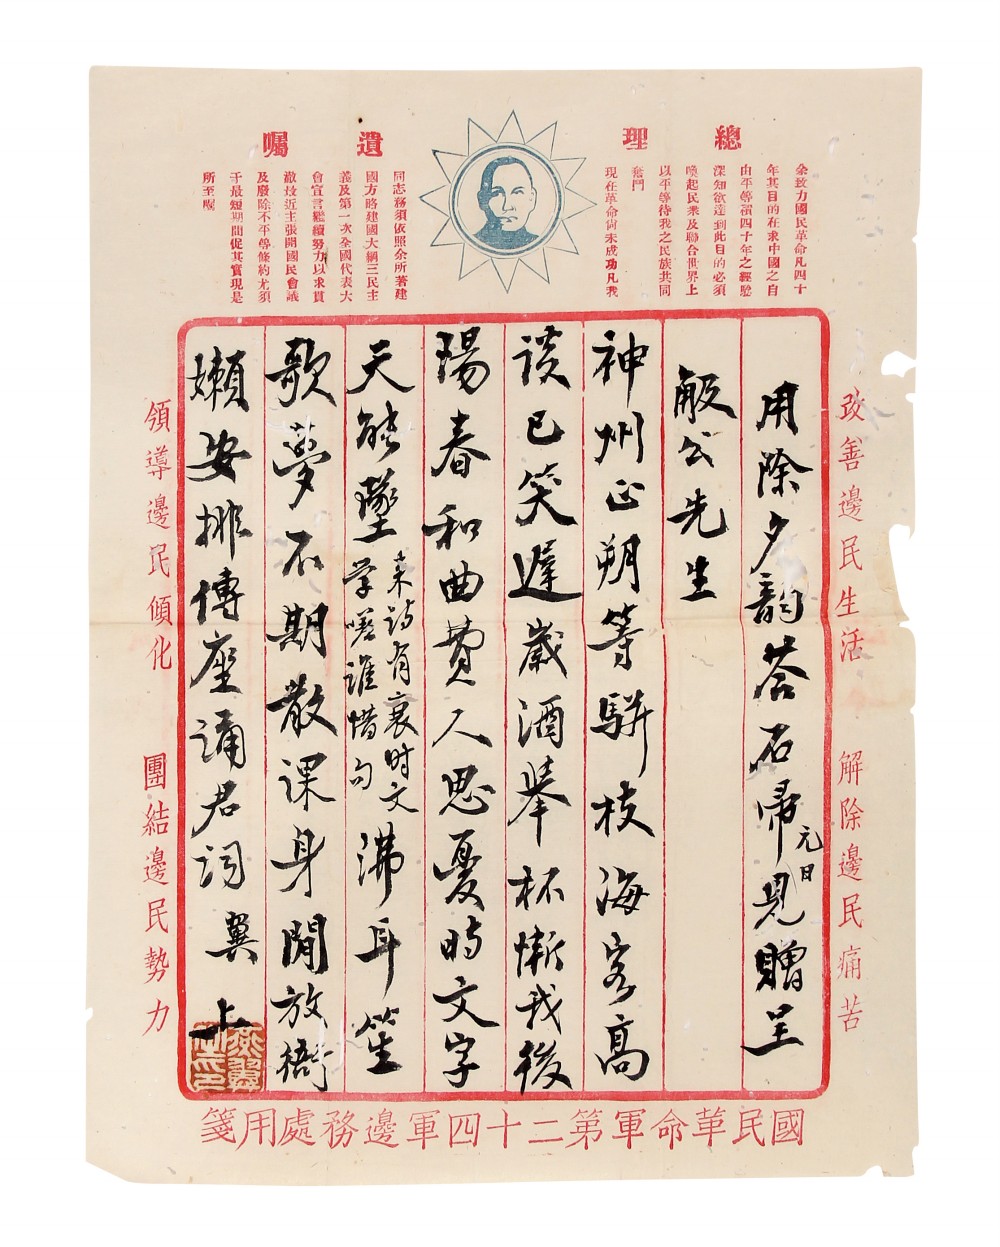 總理
余致力國民革命凡四十
年其目的在求中國之自
由平等積四十年之經驗
深知欲達到此目的必須
喚起民衆及聯合世界上
以平等待我之民族共同
奮鬥
現在革命尚未成功凡我
遺囑
同志務須依照余所著建
國方略建國大綱三民主
義及第一次全國代表大
會宣言繼續努力以求貫
澈最近主張開國民會議
及廢除不平等條約尤須
于最短期間促其實現是
所至囑
改善邊民生活 解除邊民痛苦
用除夕韵荅石帚元日見贈呈
般公先生
神州正朔等駢枝海客高
談已笑遲歲酒舉杯慚我後
陽春和曲費人思憂時文字
天能墜
來詩有衰時文
學嗟誰惜句
沸耳笙
歌夢不期散課身閒放衙
嬾安排傳座誦君詞 翼 上
領導邊民傾化 團結邊民勢力
國民革命軍第二十四軍邊務處用箋